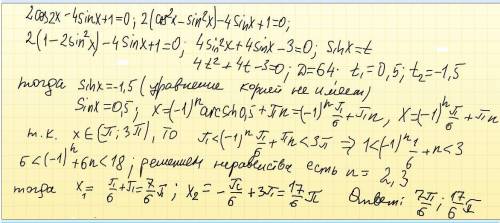 2cos2x-4sinx+1=0; 2(cos²x-sin²x)-4sinx+1=0;
2(1-2sin²x)-4sinx+1=0; 4sin²x+4sinx-3=0; sinx=t
4t²+4t-3=0; D=64. t₁=0,5; t₂=-1,5
тогда sinx=-1,5 (уравнение корней не имеет)
Sinx=0,5; x=(-1)ⁿarcsin0,5+πn=(-1)ⁿπ/6+πn, x=(-1)ⁿπ/6+πn
т.к. x∈(π;3π), то π<(-1)ⁿπ/6+πn<3π ⇒ 1<(-1)ⁿ1/6+n<3
6<(-1)ⁿ+6n<18; решением неравенства есть n=2,3
тогда x₁=π/6+π=7/6π; x₂=-π/6+3π=17/6π Ответ: 7π/6; 17/6π